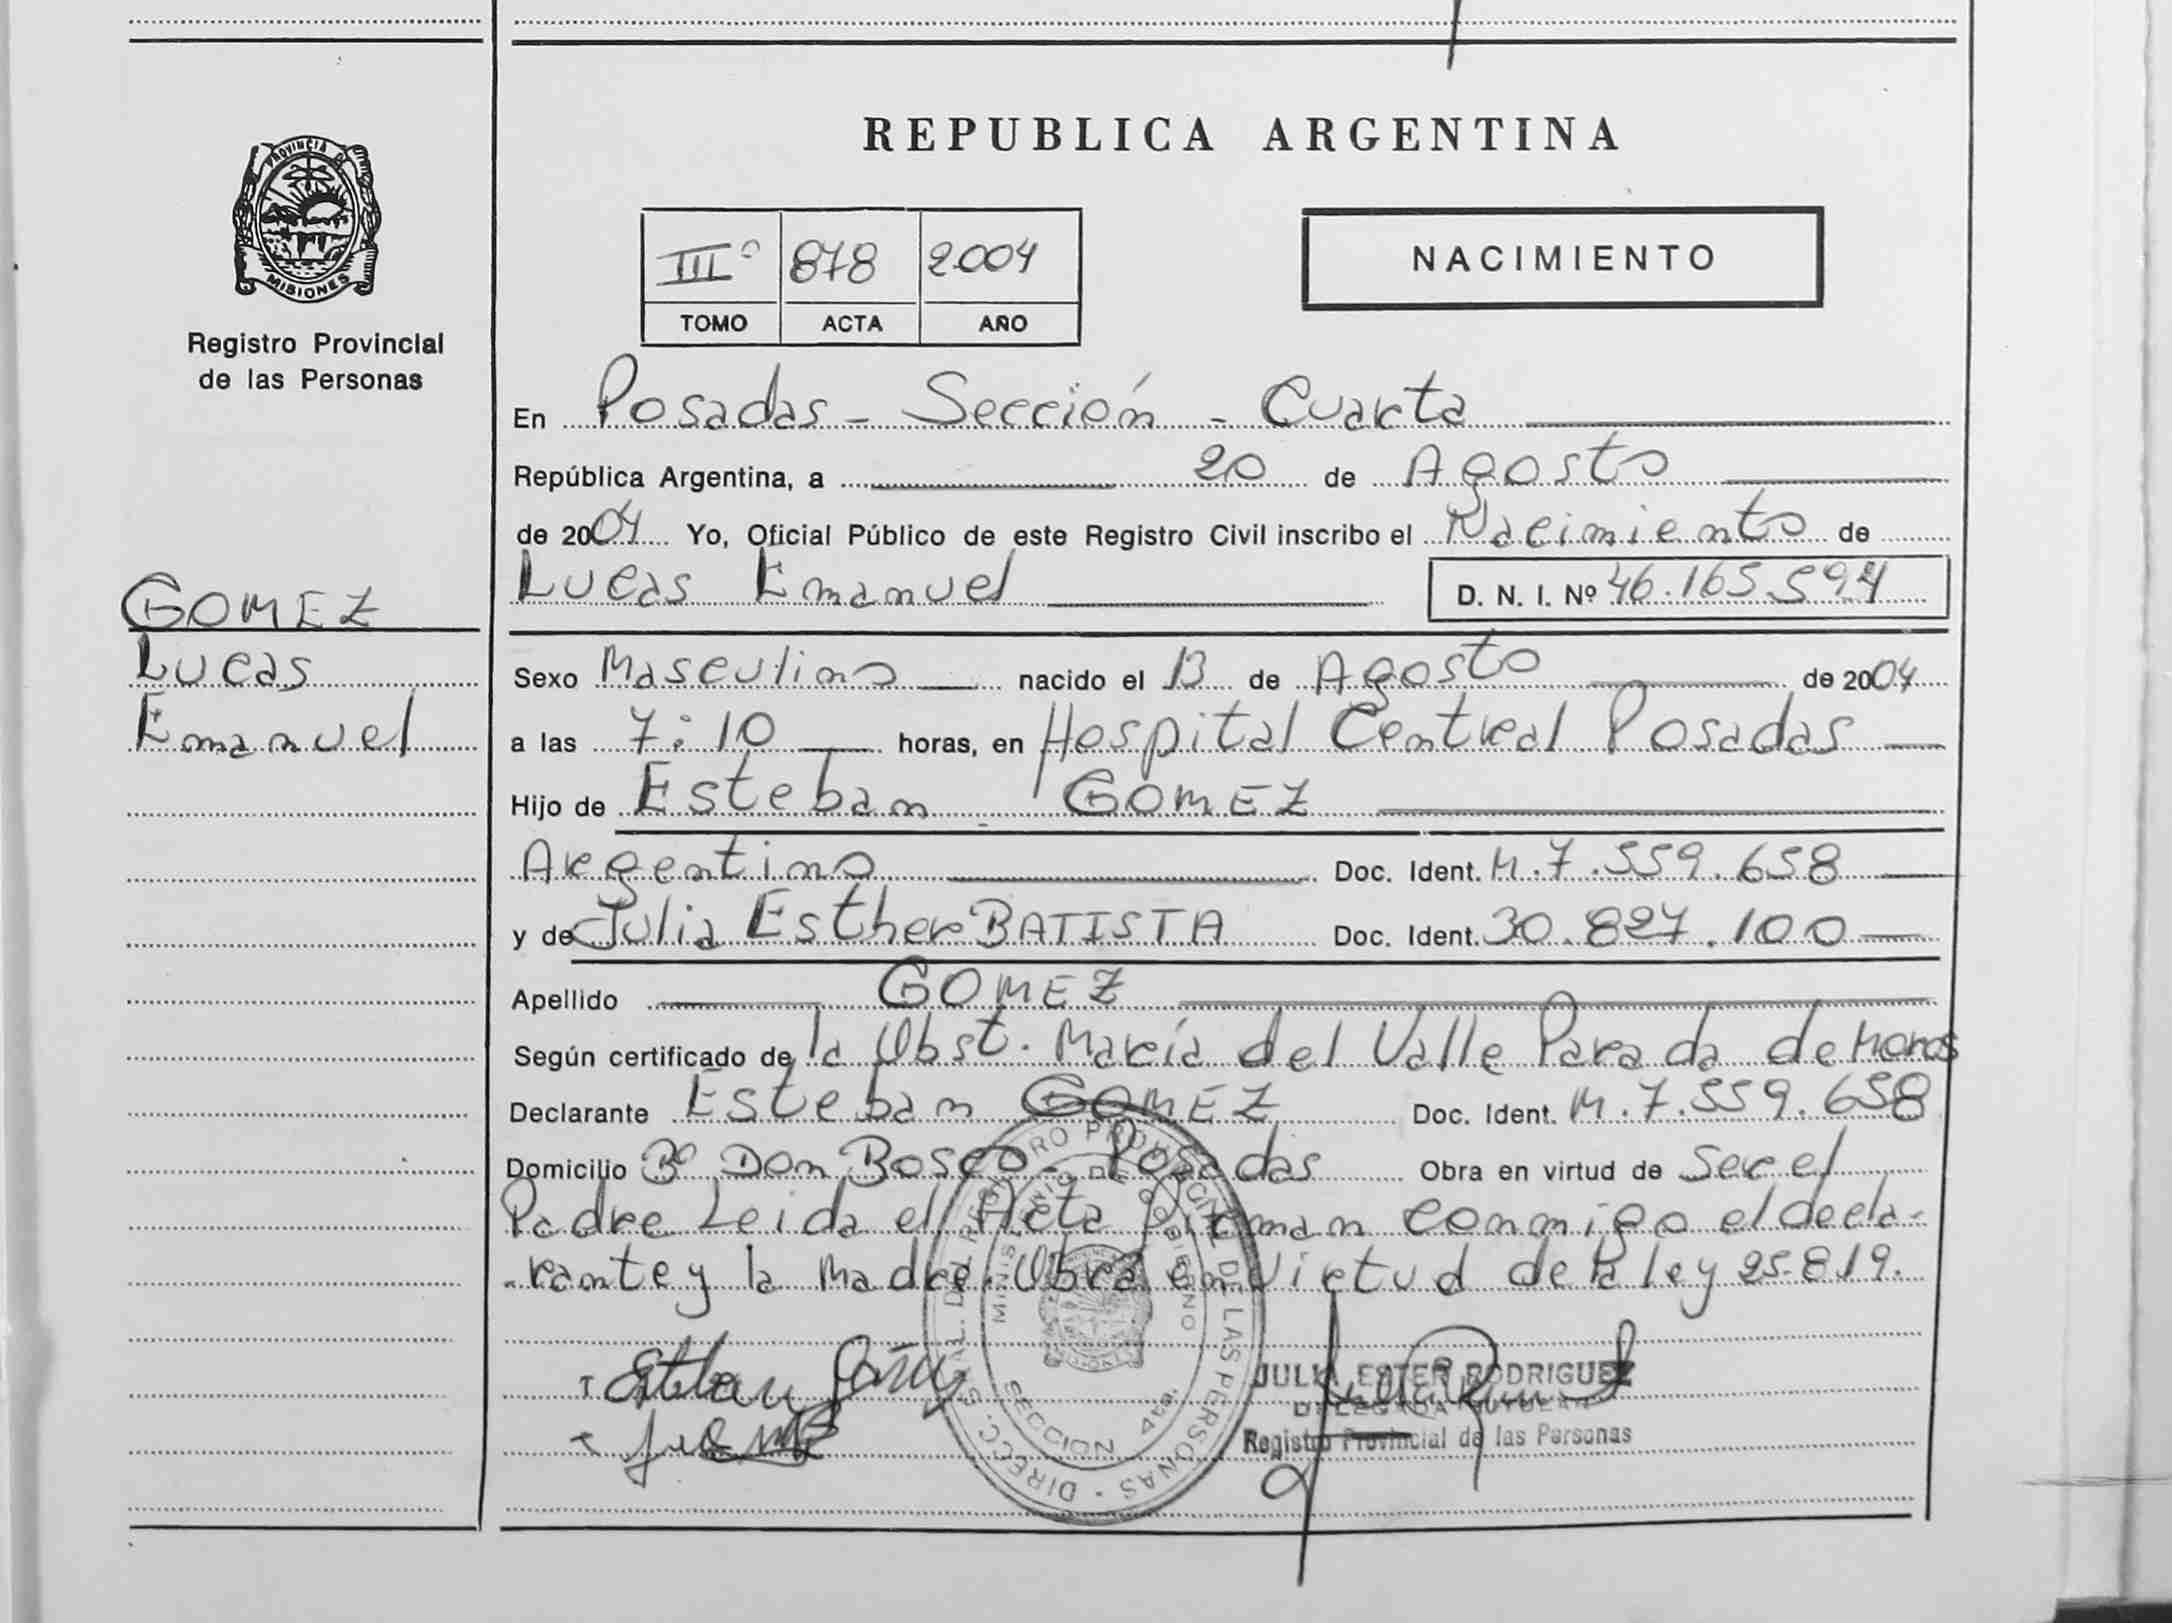 REPUBLICA ARGENTINA
PROVINCIA DE
MISIONES
Registro Provincial
de las Personas
IIIº 878 2004
TOMO ACTA AÑO
NACIMIENTO
En Posadas - Sección - Cuarta
República Argentina, a 20 de Agosto
de 2004 Yo, Oficial Público de este Registro Civil inscribo el Nacimiento de
Lucas Emanuel D. N. I. Nº 46.165.594
GOMEZ
Lucas
Emanuel
Sexo Masculino nacido el 13 de Agosto de 2004
a las 7:10 horas, en Hospital Central Posadas
Hijo de Esteban GOMEZ
Argentino Doc. Ident. M.7.559.658
y de Julia Esther BATISTA Doc. Ident. 30.827.100
Apellido GOMEZ
Según certificado de la Obst. María del Valle Parada de
Declarante Esteban GOMEZ Doc. Ident. M.7.559.658
Domicilio Bº Don Bosco - Posadas Obra en virtud de Ser el
Padre Leida el Acta Firman conmigo el decla-
-rante y la Madre. Obra en Virtud de la ley 25.819.
DIRECC. GRAL. DEL REGISTRO PROVINCIAL DE LAS PERSONAS
MINISTERIO DE GOBIERNO
SECCION 4ta.
JULIA ESTER RODRIGUEZ
DELEGADA
Registro Provincial de las Personas